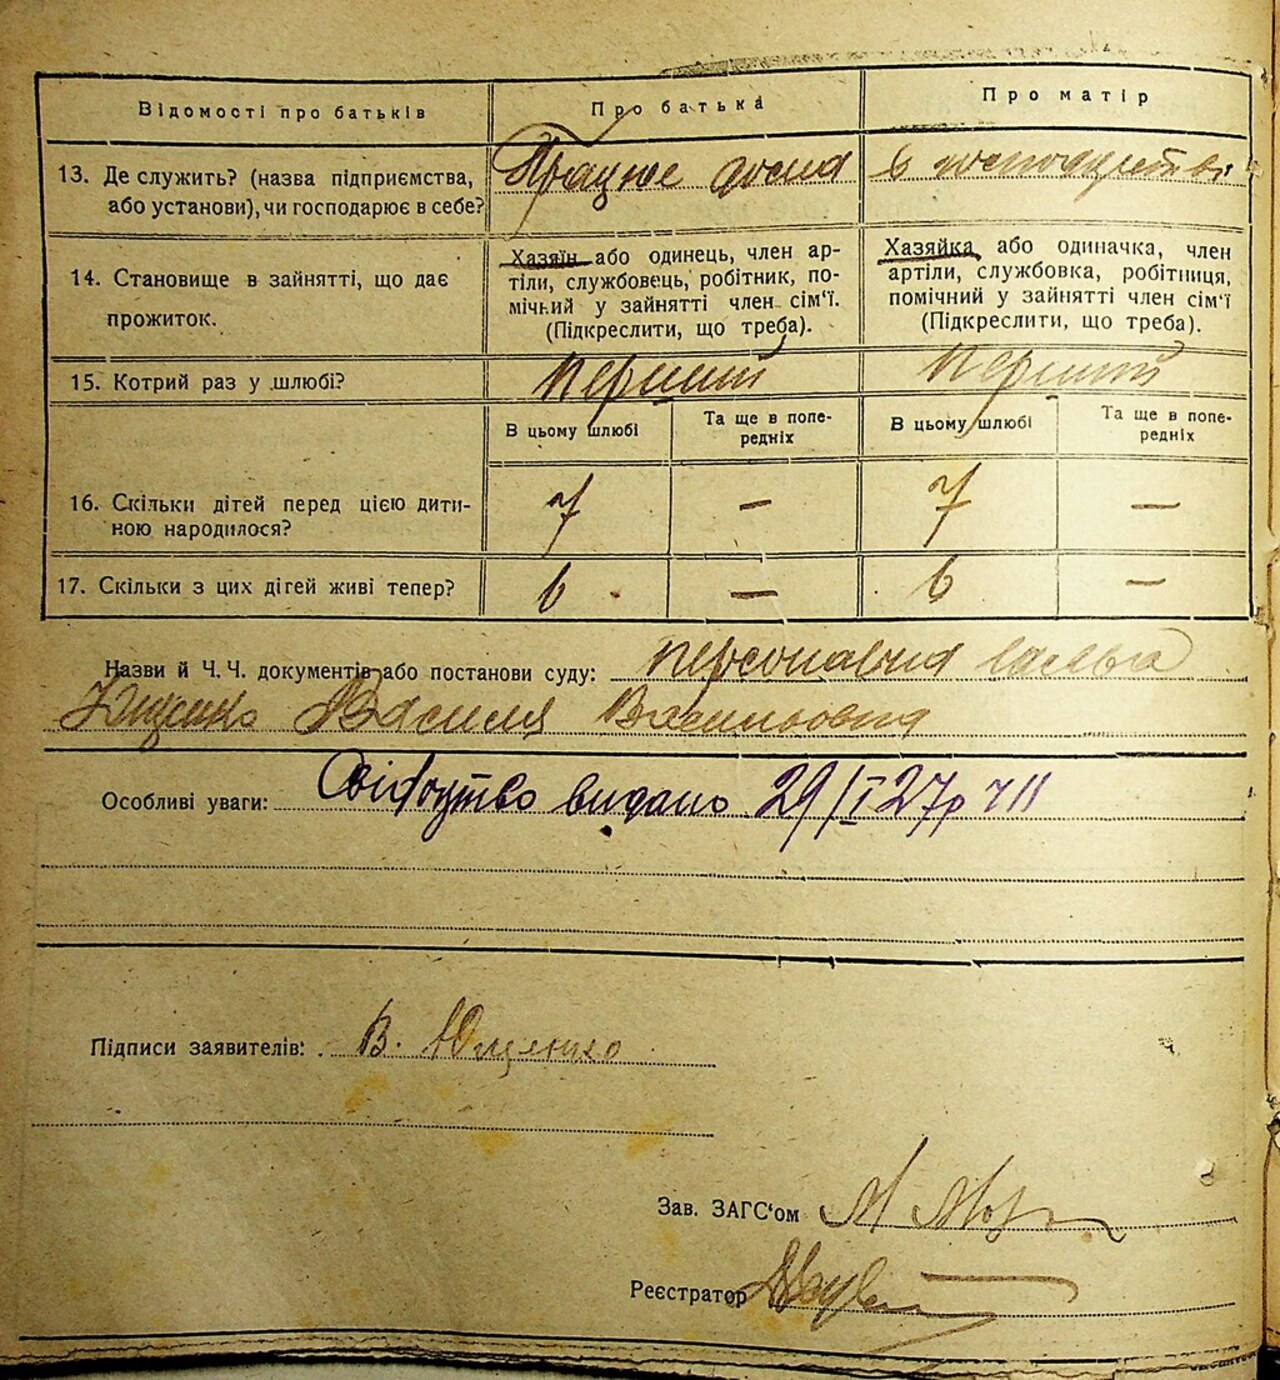 Відомості про батьків
Про батька
Про матір
13. Де служить? (назва підприємства,
або установи), чи господарює в себе?
Працює дома
в господарстві
14. Становище в зайнятті, що дає
прожиток.
Хазяїн або одинець, член ар-
тіли, службовець, робітник, по-
мічний у зайнятті член сім'ї.
(Підкреслити, що треба).
Хазяйка або одиначка, член
артіли, службовка, робітниця,
помічний у зайнятті член сім'ї
(Підкреслити, що треба).
15. Котрий раз у шлюбі?
перший
перший
В цьому шлюбі
Та ще в попе-
редніх
В цьому шлюбі
Та ще в попе-
редніх
16. Скільки дітей перед цією дити-
ною народилося?
7 — 7 —
17. Скільки з цих дітей живі тепер?
6 — 6 —
Назви й Ч. Ч. документів або постанови суду: персональна заява
Ющенко Василя Васильовича
Особливі уваги: Свідоцтво видано 29/I 27р ч 11
Підписи заявителів: В. Ющенко
Зав. ЗАГС'ом
Реєстратор